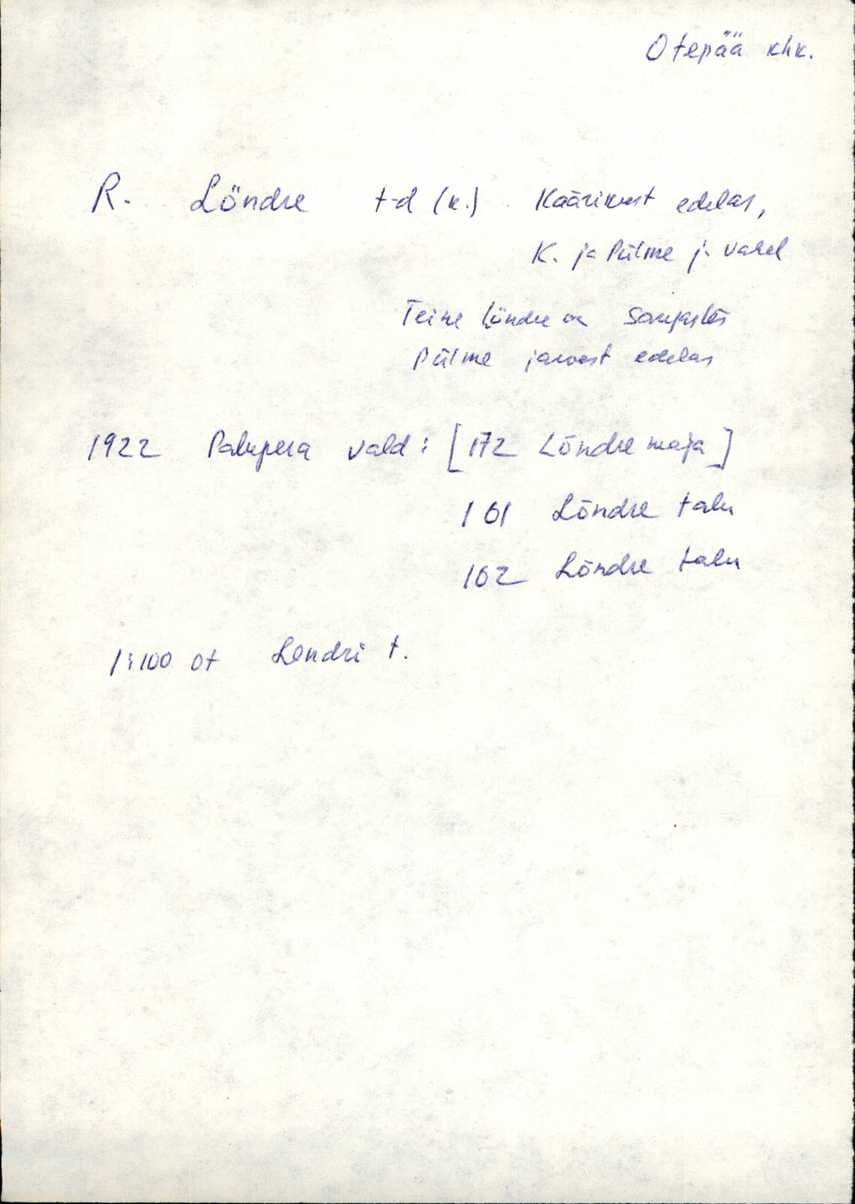 Otepää khk.
R. Löndre t-d (k.) Käärikust edelas,
K. ja Pülme j. vahel
Teine Löndre on
Pülme järvest edelas
1922 Palupera vald: [172 Lõndre maja]
101 Lõndre talu
102 Lõndre talu
1:100 Ot Lendri t.